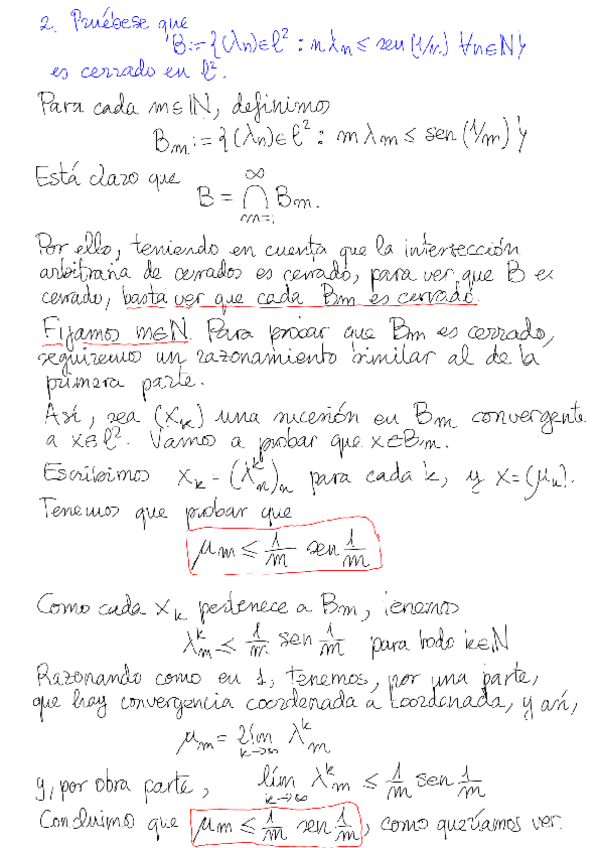 2. Pruébese que
B:={(λn)∈ℓ² : nλn ≤ sen(1/n) ∀n∈N}
es cerrado en ℓ².
Para cada m∈N, definimos
Bm:={(λn)∈ℓ² : mλm ≤ sen(1/m)}
Está claro que
B = ⋂_{m=1}^{∞} Bm.
Por ello, teniendo en cuenta que la intersección
arbitraria de cerrados es cerrado, para ver que B es
cerrado, basta ver que cada Bm es cerrado.
Fijamos m∈N. Para probar que Bm es cerrado,
seguiremos un razonamiento similar al de la
primera parte.
Así, sea (xk) una sucesión en Bm convergente
a x∈ℓ². Vamos a probar que x∈Bm.
Escribimos xk = (λ^k_n)n para cada k, y x=(μn).
Tenemos que probar que
μm ≤ 1/m sen 1/m
Como cada xk pertenece a Bm, tenemos
λ^k_m ≤ 1/m sen 1/m para todo k∈N
Razonando como en 1, tenemos, por una parte,
que hay convergencia coordenada a coordenada, y así,
μm = lím_{k→∞} λ^k_m
y, por otra parte, lím_{k→∞} λ^k_m ≤ 1/m sen 1/m
Concluimos que μm ≤ 1/m sen 1/m, como queríamos ver.